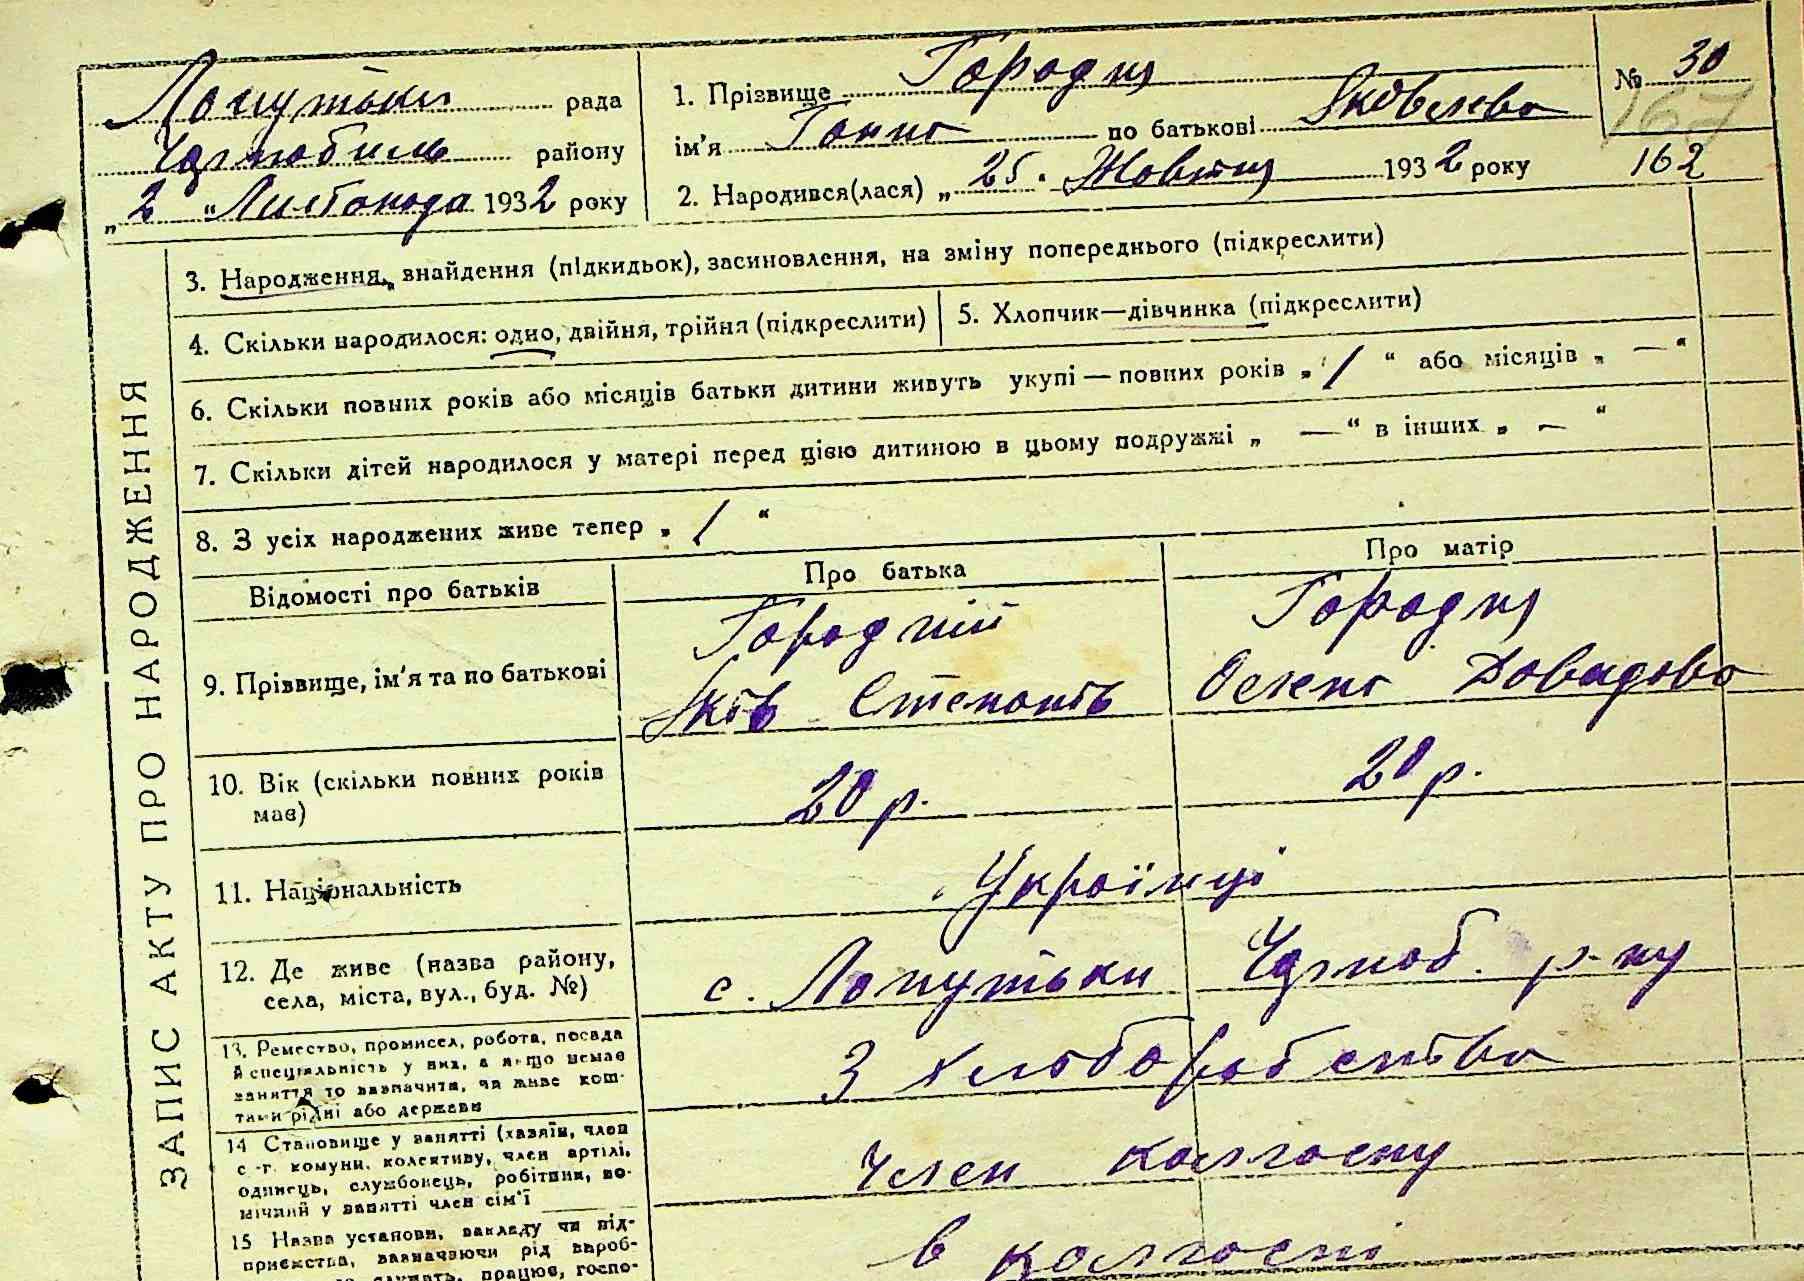 Лопутьки рада
Чорнобиль району
„ 2 “ Листопада 1932 року
1. Прізвище Городня
ім'я Ганна по батькові Яковлева
2. Народився(лася) „ 25. Жовтня 1932 року
№ 30
167
162
ЗАПИС АКТУ ПРО НАРОДЖЕННЯ
3. Народження, внайдення (підкидьок), засиновлення, на зміну попереднього (підкреслити)
4. Скільки народилося: одно, двійня, трійня (підкреслити)
5. Хлопчик—дівчинка (підкреслити)
6. Скільки повних років або місяців батьки дитини живуть укупі — повних років „ 1 “ або місяців „ — “
7. Скільки дітей народилося у матері перед цією дитиною в цьому подружжі „ — “ в інших „ — “
8. З усіх народжених живе тепер „ 1 “
Відомості про батьків
Про батька
Про матір
9. Прізвище, ім'я та по батькові
Городній
Яків Степанів
Городня
Олена Давидова
10. Вік (скільки повних років
має)
20 р.
20 р.
11. Національність
Українці
12. Де живе (назва району,
села, міста, вул., буд. №)
с. Лопутьки Чорноб. р-ну
13. Ремество, промисел, робота, посада
й спеціяльність у них, а якщо немає
заняття то зазначити, чи живе кош-
тами рідні або держави
З хлiборобства
14 Становище у занятті (хазяїн, член
с.-г. комуни, колективу, член артілі,
одинець, службовець, робітник, по-
мічний у занятті член сім'ї
член колгоспу
15 Назва установи, закладу чи під-
приємства, зазначаючи рід вироб-
служить, працює, госпо-
в колгоспі